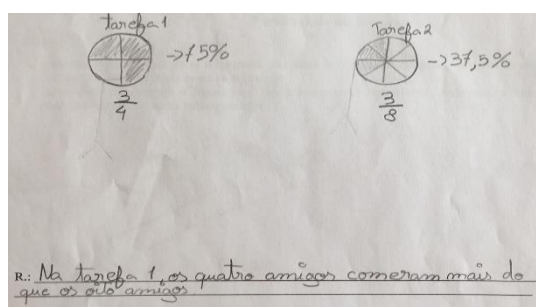 tarefa 1
Tarefa 2
->75%
->37,5%
3/4
3/8
R.: Na tarefa 1, os quatro amigos comeram mais do
que os oito amigos.